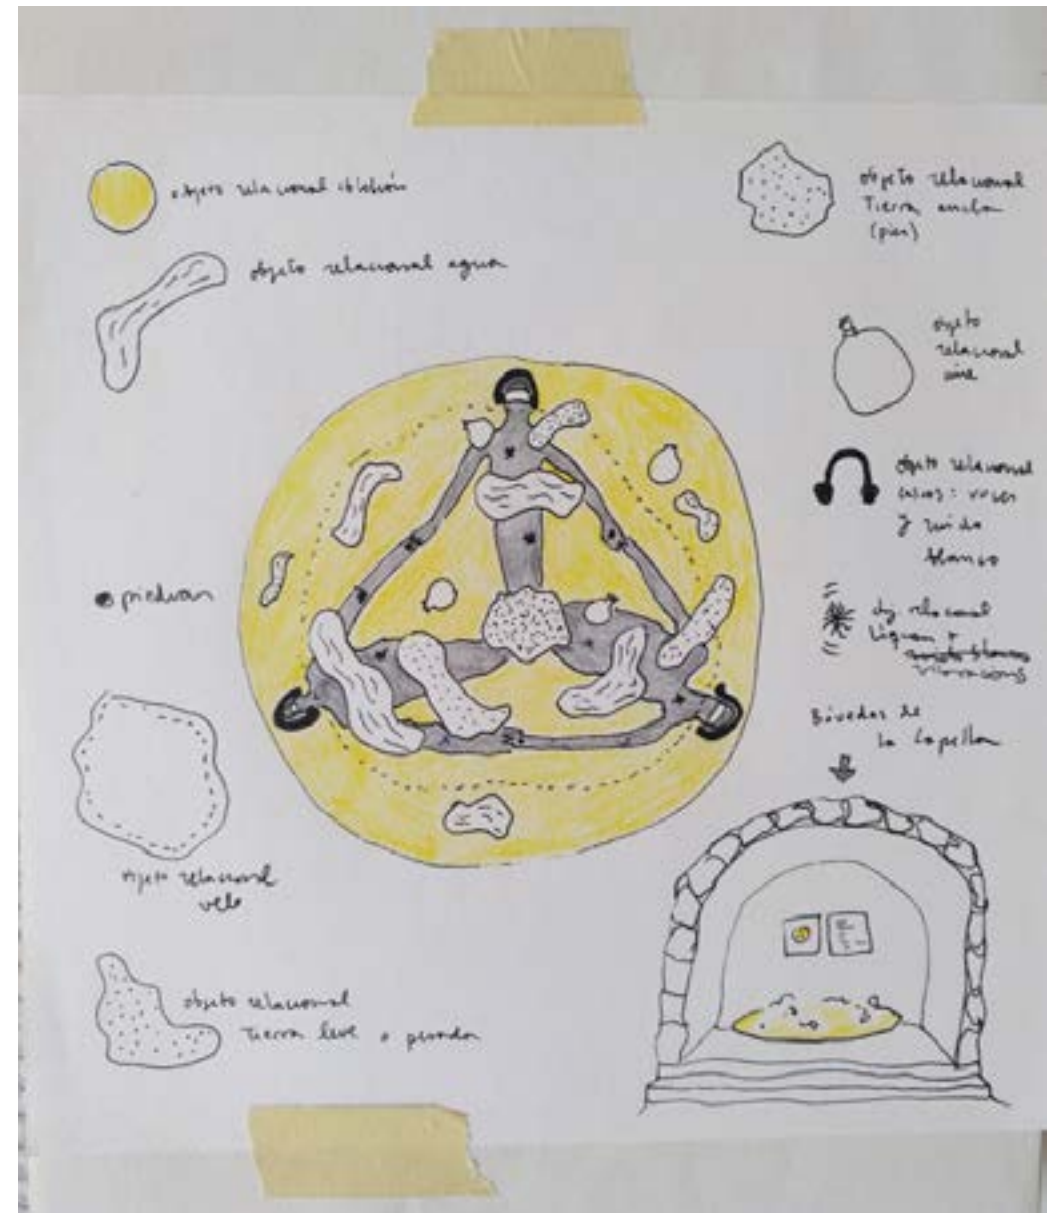 objeto relacional colchón
objeto relacional agua
piedras
objeto relacional
velo
objeto relacional
Tierra leve o pesada
objeto relacional
Tierra ancla
(pies)
objeto
relacional
aire
objeto relacional
cascos: voces
y ruido
blanco
obj relacional
vibraciones
Bóvedas de
la Capella